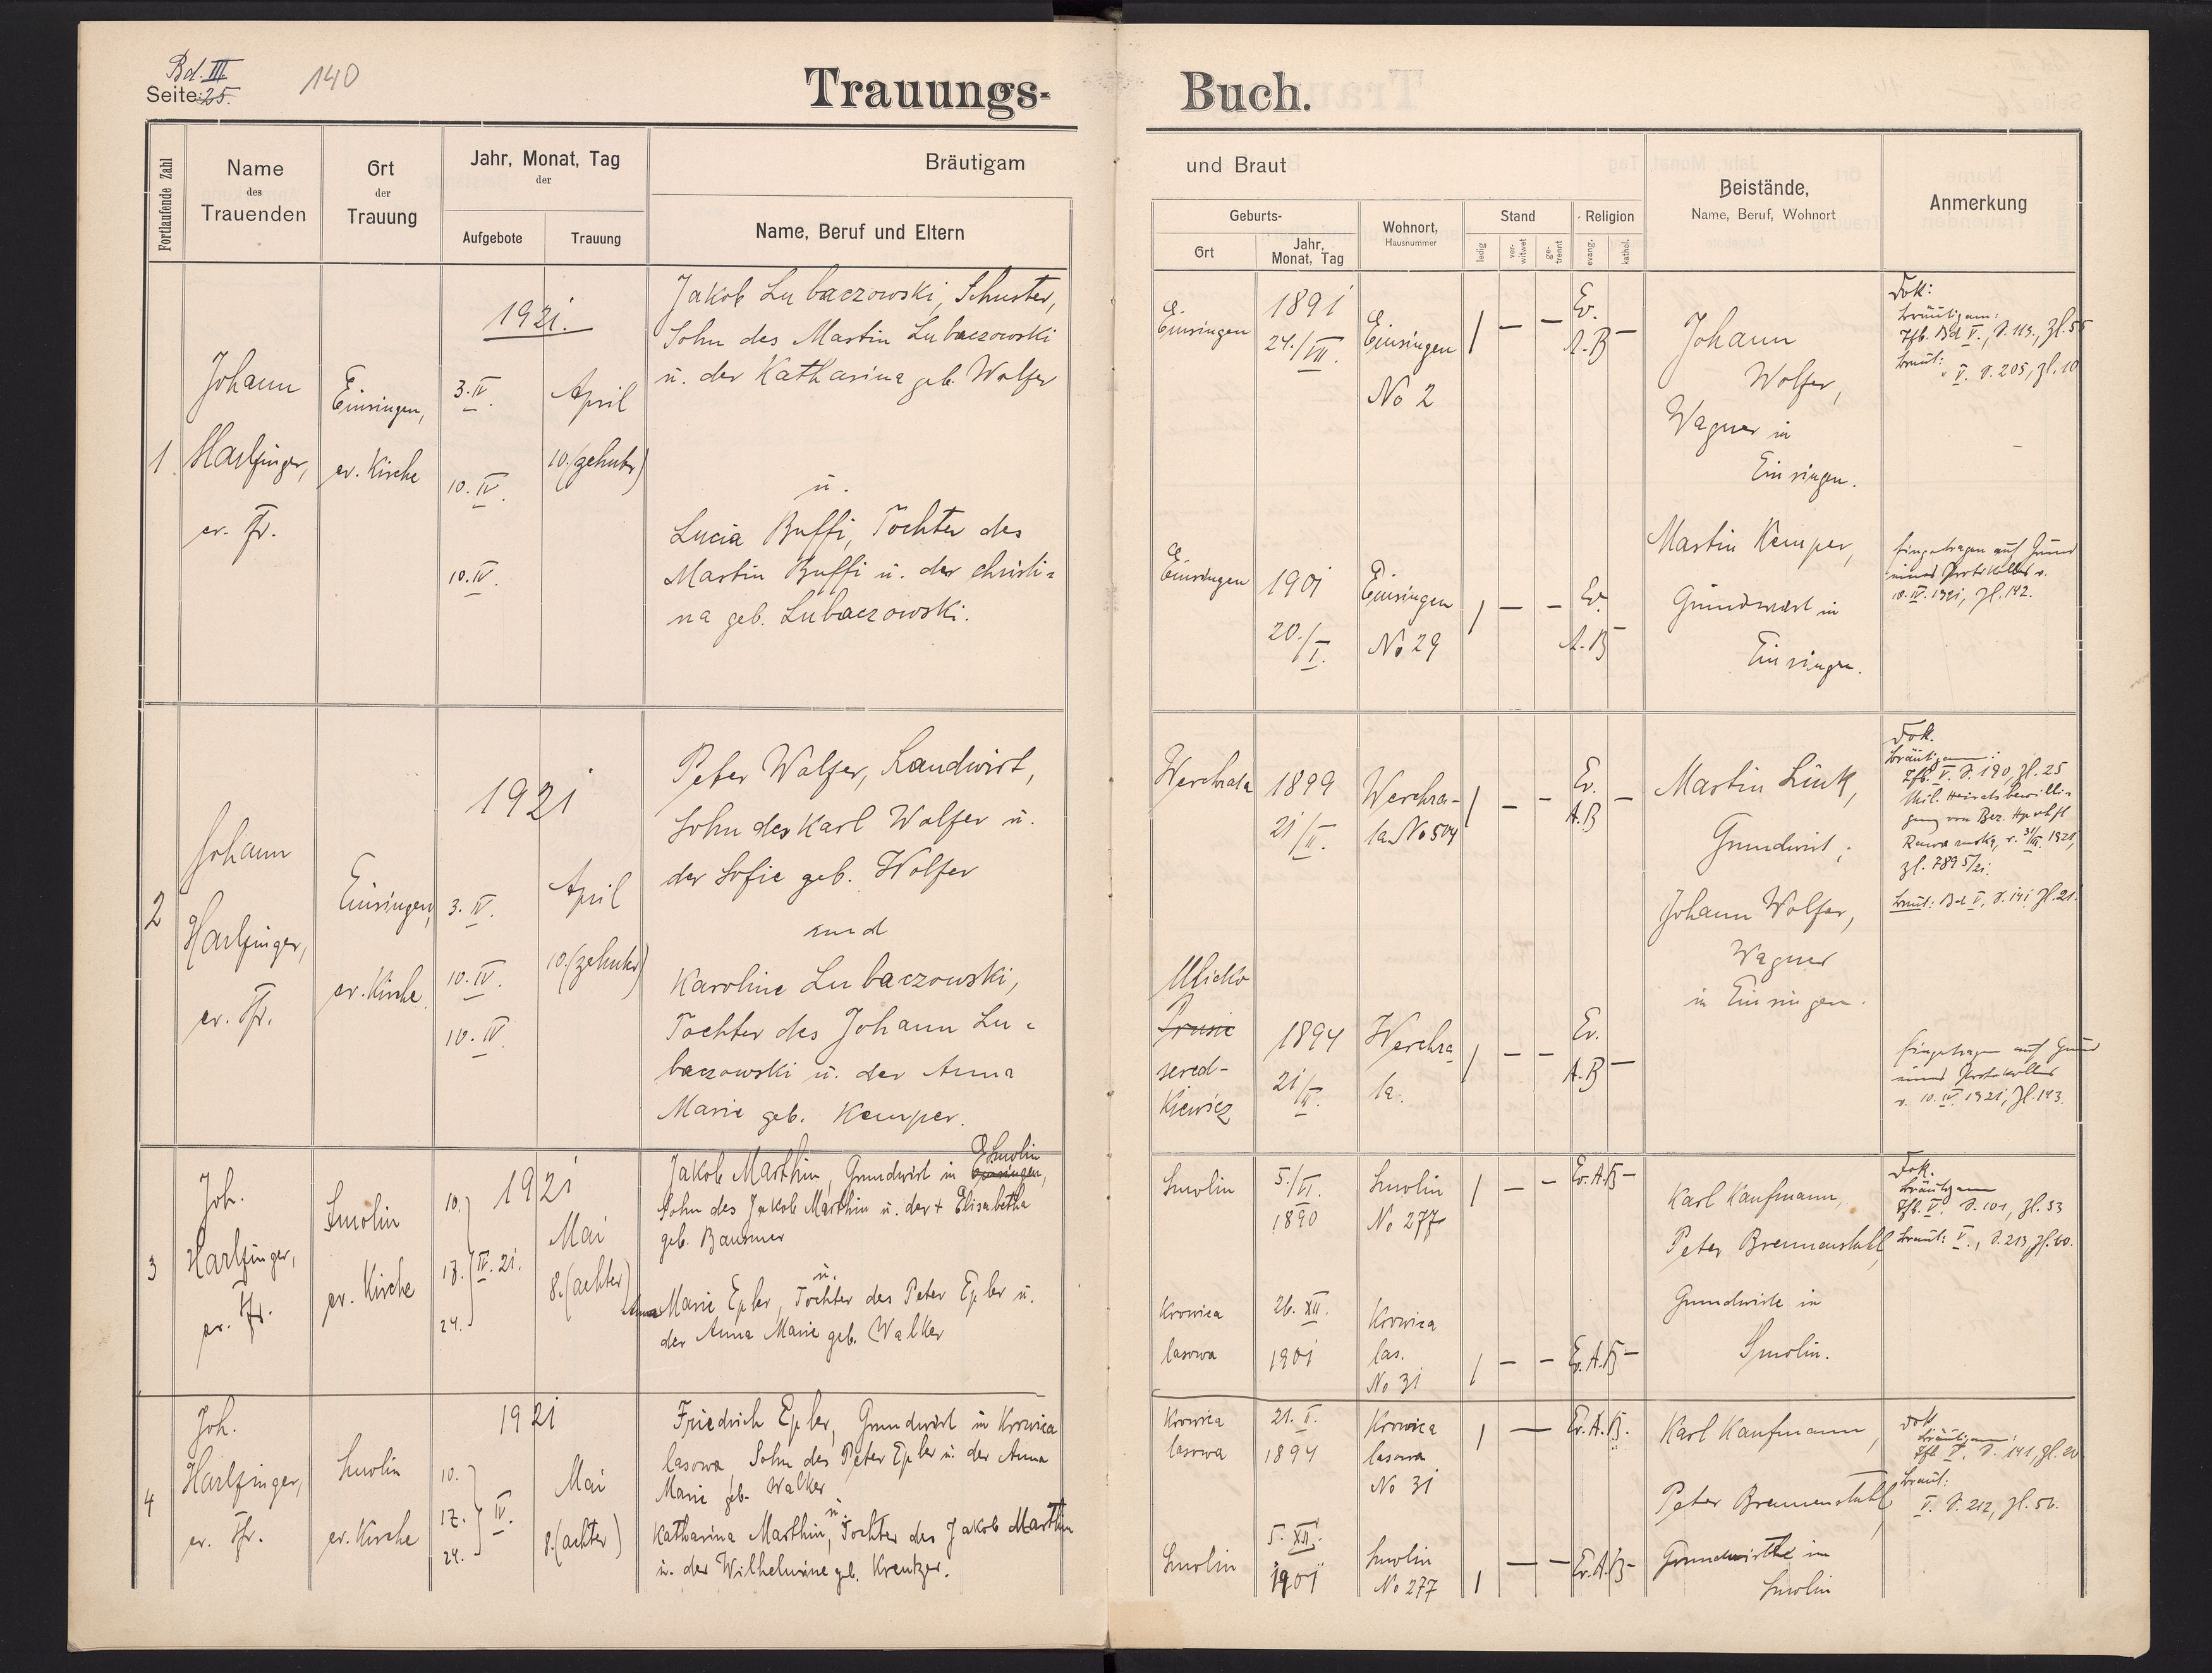 Bd. III
Seite: 25.
140
Trauungs-
Buch.
Fortlaufende Zahl
Name
des
Trauenden
Ort
der
Trauung
Jahr, Monat, Tag
der
Aufgebote
Trauung
Bräutigam
Name, Beruf und Eltern
und Braut
Geburts-
Ort
Jahr,
Monat, Tag
Wohnort,
Hausnummer
Stand
ledig
ver-
witwet
ge-
trennt
Religion
evang.
kathol.
Beistände,
Name, Beruf, Wohnort
Anmerkung
1
Johann
Harlfinger,
ev. Pfr.
Einsingen,
ev. Kirche
1921.
3. IV.
10. IV.
10. IV.
April
10. (zehnter)
Jakob Lubaczowski, Schuster,
Sohn des Martin Lubaczowski
u. der Katharina geb. Wolfer
u.
Lucia Buffi, Tochter des
Martin Buffi u. der Christi=
na geb. Lubaczowski.
Einsingen
1891
24./VII.
Einsingen
No 2
| — —
Ev.
A.B —
Einsingen
1901
20./I.
Einsingen
No 29
| — —
Ev.
A.B —
Johann
Wolfer,
Wagner in
Einsingen.
Martin Kemper,
Grundwirt in
Einsingen.
Dok:
Bräutigam:
Tfb. Bd V., S. 113., Zl. 55
Braut:
" V. S. 205, Zl. 10
Eingetragen auf Grund
eines Protokolles v.
10. IV. 1921, Zl. 142.
2
Johann
Harlfinger,
ev. Pfr.
Einsingen,
ev. Kirche
1921
3. IV.
10. IV.
10. IV
April
10. (zehnter)
Peter Wolfer, Landwirt,
Sohn des Karl Wolfer u.
der Sofie geb. Wolfer
und
Karoline Lubaczowski,
Tochter des Johann Lu=
baczowski u. der Anna
Marie geb. Kemper.
Werchrata
1899
21/II.
Werchra-
ta No 504
| — —
Ev.
A.B —
Ulicko
sered-
kiewicz
1894
21/II.
Werchra-
ta.
| — —
Ev.
A.B —
Martin Link,
Grundwirt,
Johann Wolfer,
Wagner
in Einsingen.
Dok.
Bräutigam:
Tfb. V. S. 190, Zl. 25
Mil. Heiratsbewilli-
gung von Bez. Hptmft
Rawa ruska, v. 31/III. 1921,
Zl. 7895/21.
Braut: Bd V, S. 141 Zl. 21.
Eingetragen auf Grund
eines Protokolles
v. 10. IV. 1921, Zl. 143.
3
Joh.
Harlfinger,
ev. Pfr.
Smolin
ev. Kirche
1921
10.
17. IV. 21.
24.
Mai
8. (achter)
Smolin
Jakob Marthin, Grundwirt in Einsingen,
Sohn des Jakob Marthin u. der + Elisabetha
geb. Baumer
u.
Anna Marie Epler, Tochter des Peter Epler u.
der Anna Marie geb. Walker
Smolin
5./VI.
1890
Smolin
No 277
| — —
Ev. A.B —
Krowica
lasowa
26. XII.
1901
Krowica
las.
No 31
| — —
Ev. A.B —
Karl Kaufmann,
Peter Brennenstuhl,
Grundwirte in
Smolin.
Dok.
Bräutigam
Tfb. V. S. 101, Zl. 53
Braut: V., S. 213 Zl. 60.
4
Joh.
Harlfinger,
ev. Pfr.
Smolin
ev. Kirche
1921
10.
17. IV.
24.
Mai
8. (achter)
Friedrich Epler, Grundwirt in Krowica
lasowa, Sohn des Peter Epler u. der Anna
Marie geb. Walker
u.
Katharina Marthin, Tochter des Jakob Marthin
u. der Wilhelmine geb. Kreutzer.
Krowica
lasowa
21. V.
1894
Krowica
lasowa
No 31
| —
Ev. A.B.
Smolin
5. XII.
1901
Smolin
No 277
| — —
Ev. A.B —
Karl Kaufmann,
Peter Brennenstuhl,
Grundwirthe in
Smolin
Dok
Bräutigam:
Tfb. V. S. 141, Zl. 20
Braut:
V. S. 212, Zl. 56.